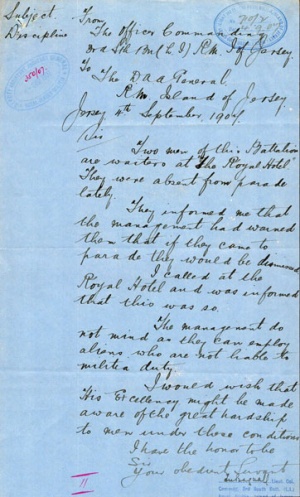 Subject
Discipline
From
The Officer Commanding
3rd Bn (L I) R.M. I of Jersey.
To
The DAA General
R.M. Island of Jersey
350/07.
Jersey 4th September, 1907.
Sir
Two men of this Battalion
are waiters at "The Royal Hotel"
They were absent from parade
lately.
They informed me that
the management had warned
them that if they came to
parade they would be dismissed
I called at the
Royal Hotel and was informed
that this was so.
The management do
not mind as they can employ
aliens who are not liable to
militia duty.
I would wish that
His Excellency might be made
aware of the great hardship
to men under these conditions
I have the honor to be
Sir
Your obedient Servant
Lieut. Col.
11